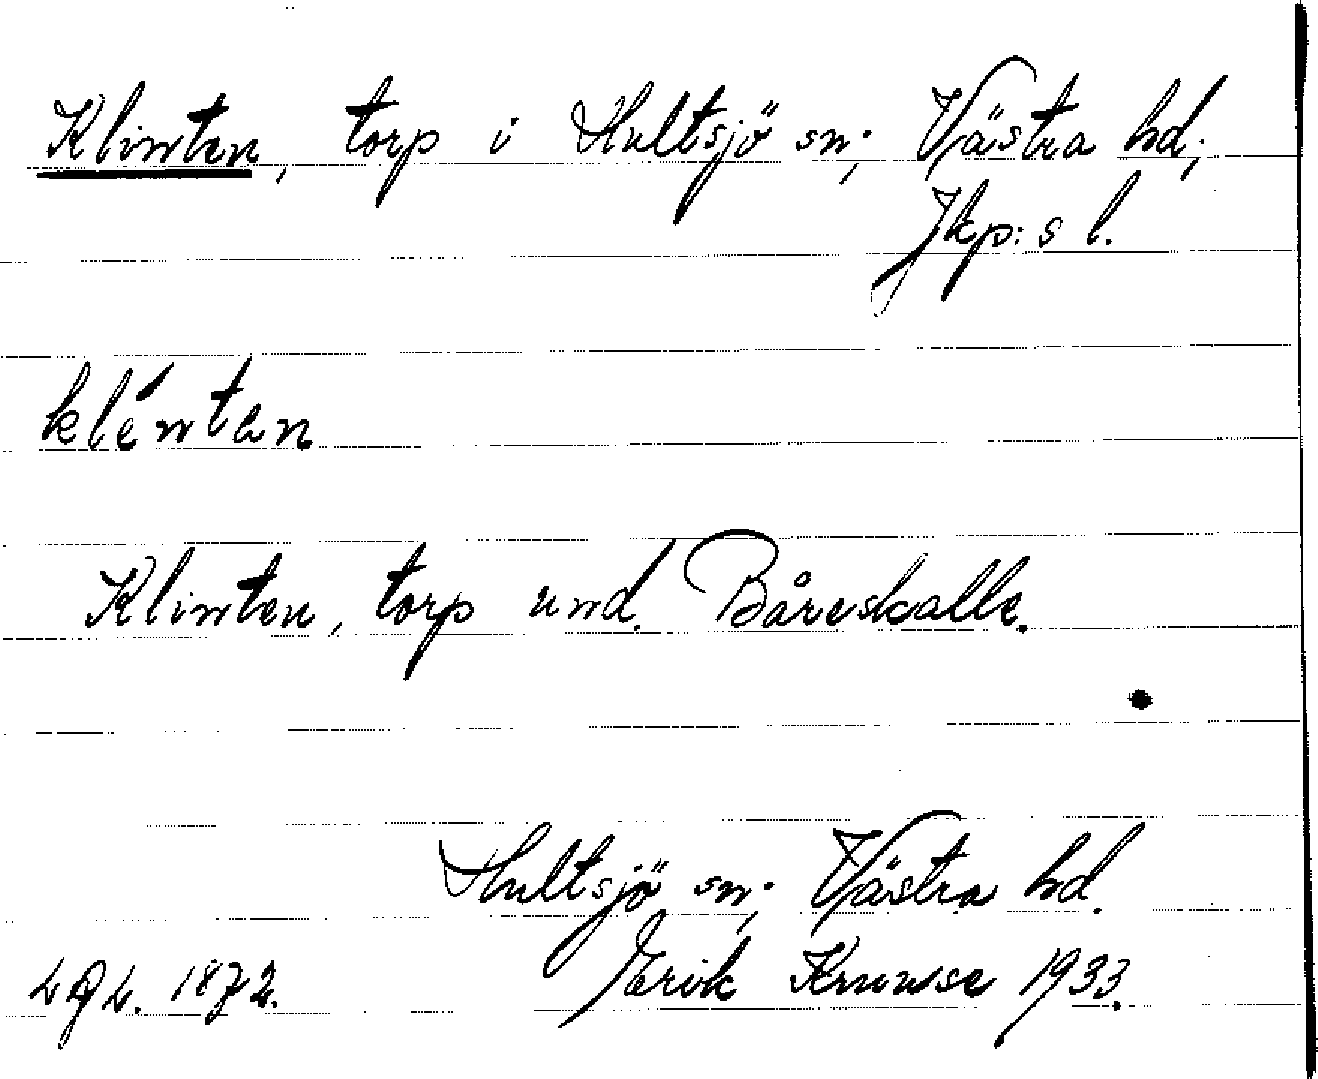 Klinten, torp i Hultsjö sn; Västra hd;
Jkp:s l.
klénten
Klinten, torp und. Båreskalle.
Hultsjö sn; Västra hd.
1872. Erik Kruuse 1933.